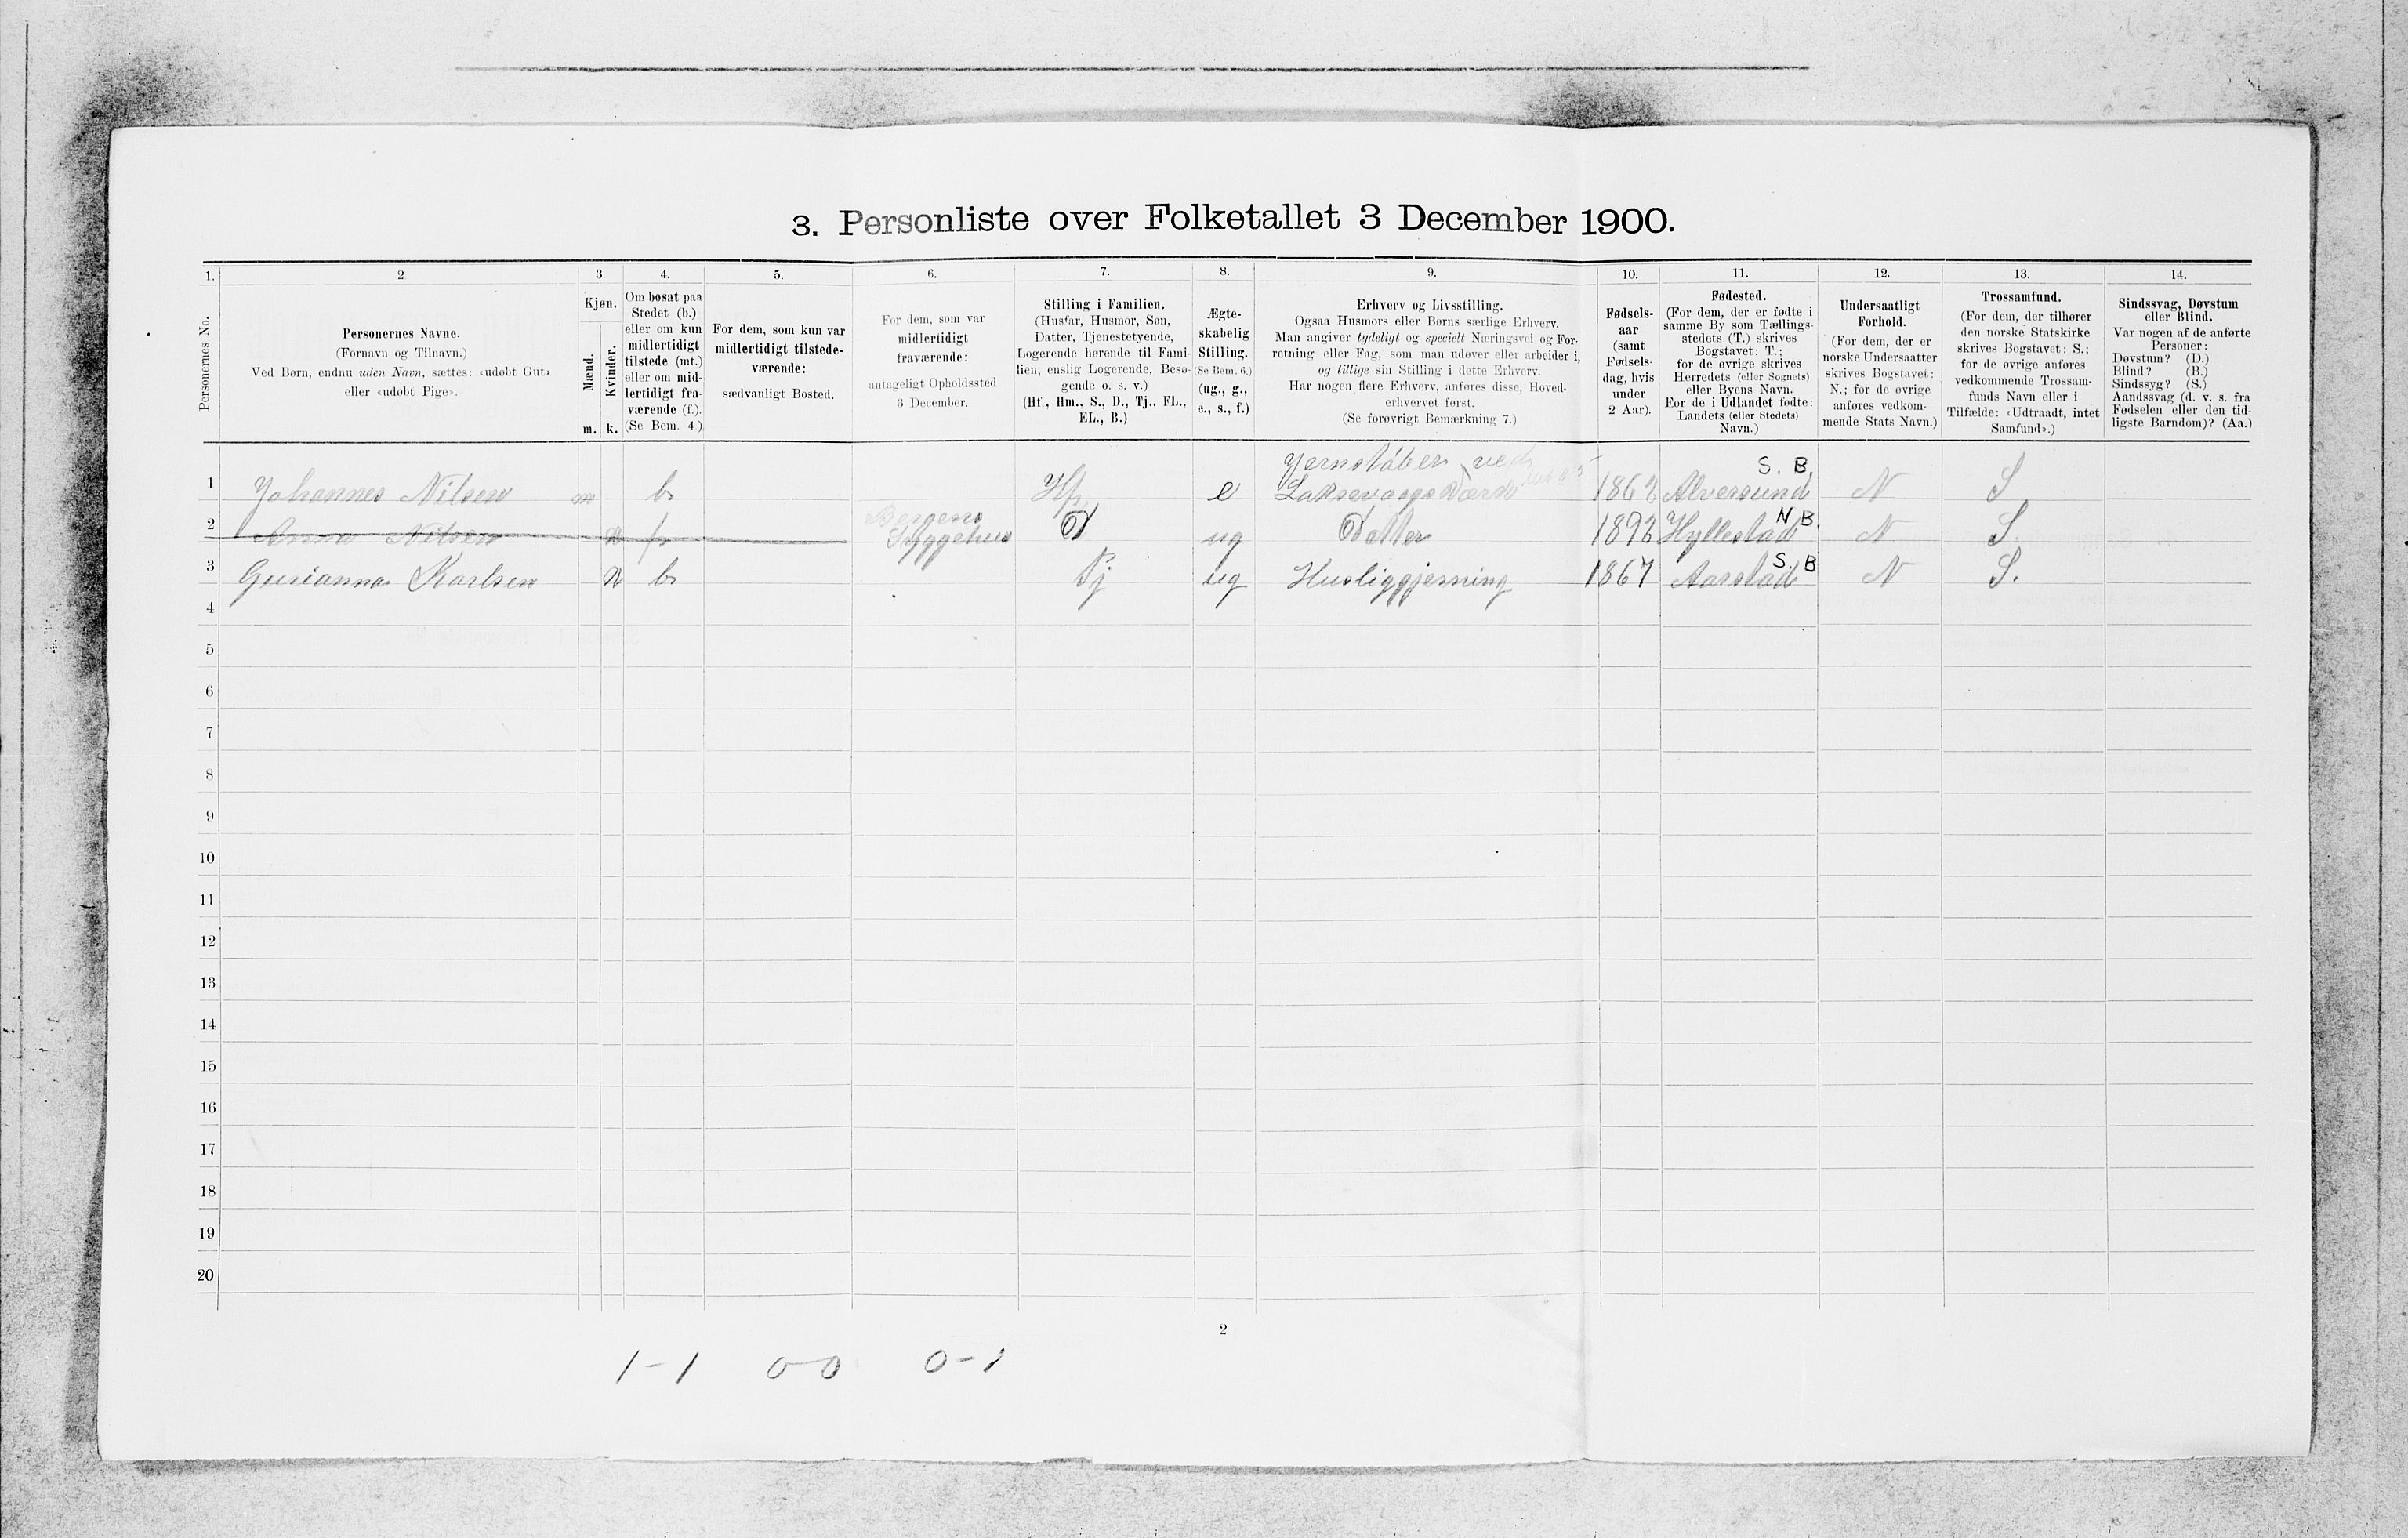 3. Personliste over Folketallet 3 December 1900.
1. 2 3. 4. 5. 6. 7. 8. 9. 10. 11. 12. 13. 14.
Personernes No.
Personernes Navne.
(Fornavn og Tilnavn.)
Ved Børn, endnu uden Navn, sættes: «udøbt Gut»
eller «udøbt Pige».
Kjøn.
Mænd.
Kvinder.
m. k.
Om bosat paa
Stedet (b.)
eller om kun
midlertidigt
tilstede (mt.)
eller om mid-
lertidigt fra-
værende (f.).
(Se Bem. 4.)
For dem, som kun var
midlertidigt tilstede-
værende:
sædvanligt Bosted.
For dem, som var
midlertidigt
fraværende:
antageligt Opholdssted
3 December.
Stilling i Familien.
(Husfar, Husmor, Søn,
Datter, Tjenestetyende,
Logerende hørende til Fami-
lien, enslig Logerende, Besø-
gende o. s. v.)
(Hf., Hm., S., D., Tj., FL.,
EL., B.)
Ægte-
skabelig
Stilling.
(Se Bem. 6.)
(ug., g.,
e., s., f.)
Erhverv og Livsstilling.
Ogsaa Husmors eller Børns særlige Erhverv.
Man angiver tydeligt og specielt Næringsvei og For-
retning eller Fag, som man udøver eller arbeider i,
og tillige sin Stilling i dette Erhverv.
Har nogen flere Erhverv, anføres disse, Hoved-
erhvervet først.
(Se forøvrigt Bemærkning 7.)
Fødsels-
aar
(samt
Fødsels-
dag, hvis
under
2 Aar).
Fødested.
(For dem, der er fødte i
samme By som Tællings-
stedets (T.) skrives
Bogstavet: T.;
for de øvrige skrives
Herredets (eller Sognets)
eller Byens Navn.
For de i Udlandet fødte:
Landets (eller Stedets)
Navn.)
Undersaatligt
Forhold.
(For dem, der er
norske Undersaatter
skrives Bogstavet:
N.; for de øvrige
anføres vedkom-
mende Stats Navn.)
Trossamfund.
(For dem, der tilhører
den norske Statskirke
skrives Bogstavet: S.;
for de øvrige anføres
vedkommende Trossam-
funds Navn eller i
Tilfælde: «Udtraadt, intet
Samfund».)
Sindssvag, Døvstum
eller Blind.
Var nogen af de anførte
Personer:
Døvstum? (D.)
Blind? (B.)
Sindssyg? (S.)
Aandssvag (d. v. s. fra
Fødselen eller den tid-
ligste Barndom)? (Aa.)
Jernstøber ved S. B.
1 Johannes Nilsen m b Hf e Laksevaags Værk 1862 Alversund N S
Bergens N B.
2 Anna Nilsen k f Sygehus D ug Datter 1892 Hyllestad N S
S. B
3 Gurianna Karlsen k b Tj ug Husliggjerning 1867 Aarstad N S.
4
5
6
7
8
9
10
11
12
13
14
15
16
17
18
19
20
2
1-1 0-0 0-1